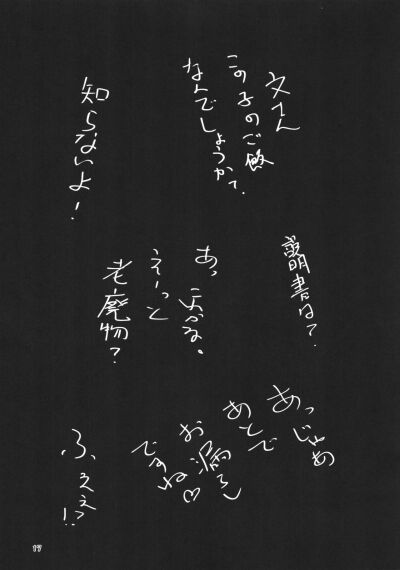 文さん
この子のご飯
なんでしょうか?
知らないよ!
説明書は?
あっ
えーっと
老廃物?
あっじゃあ
あとで
お漏らし
ですね♡
ふぇぇ!?
17